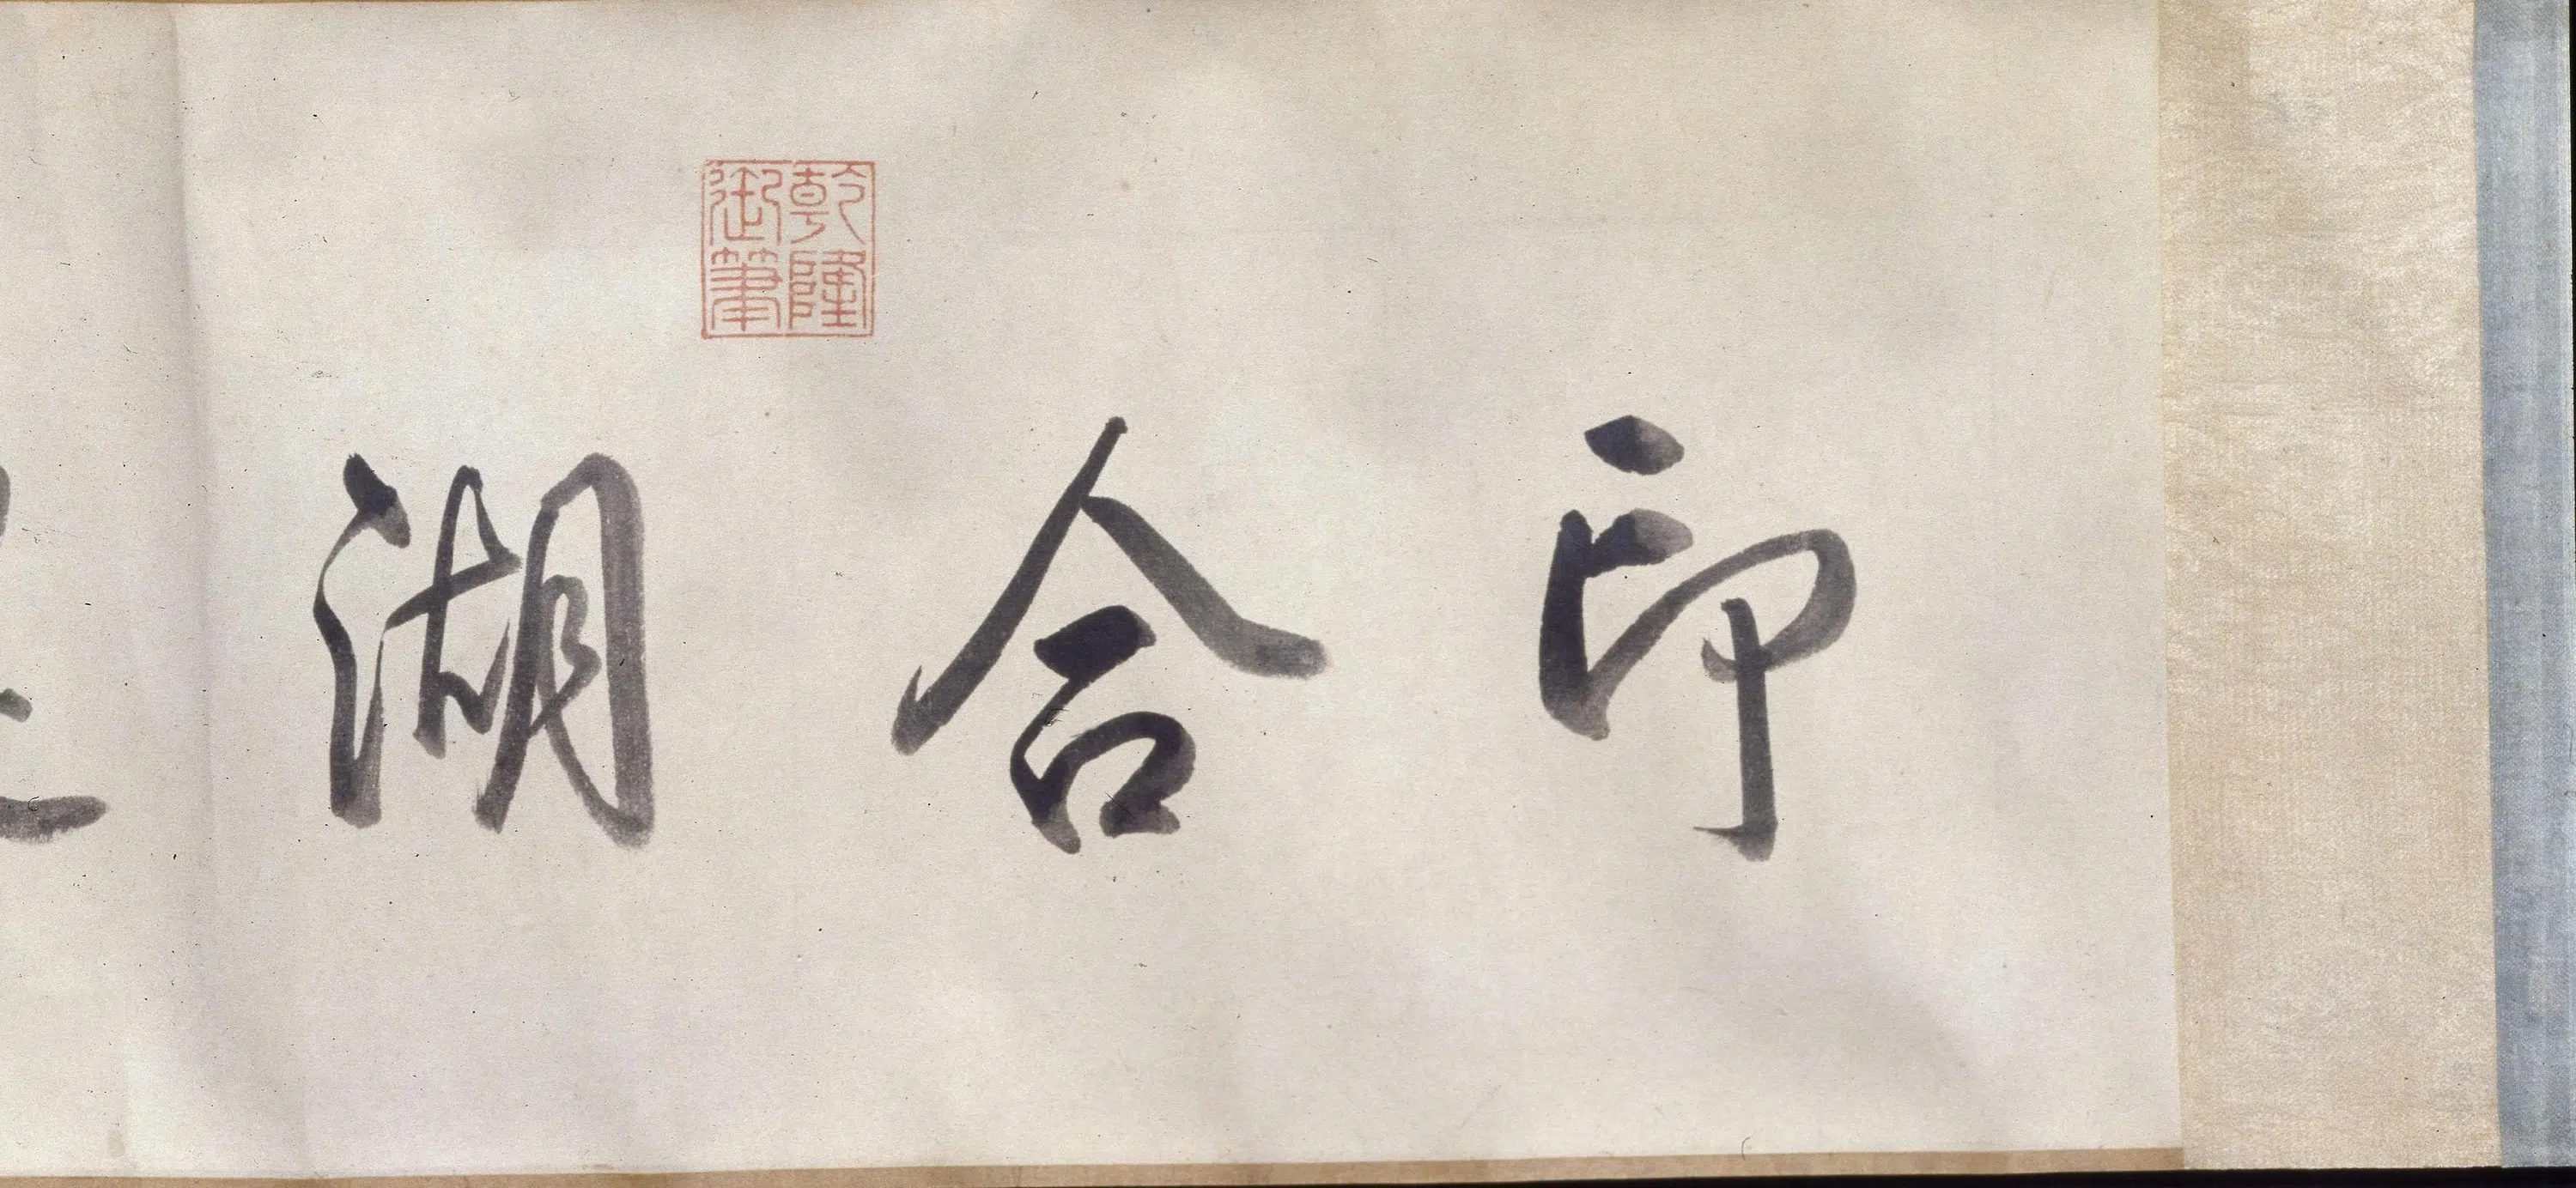 印合湖
乾隆
御筆